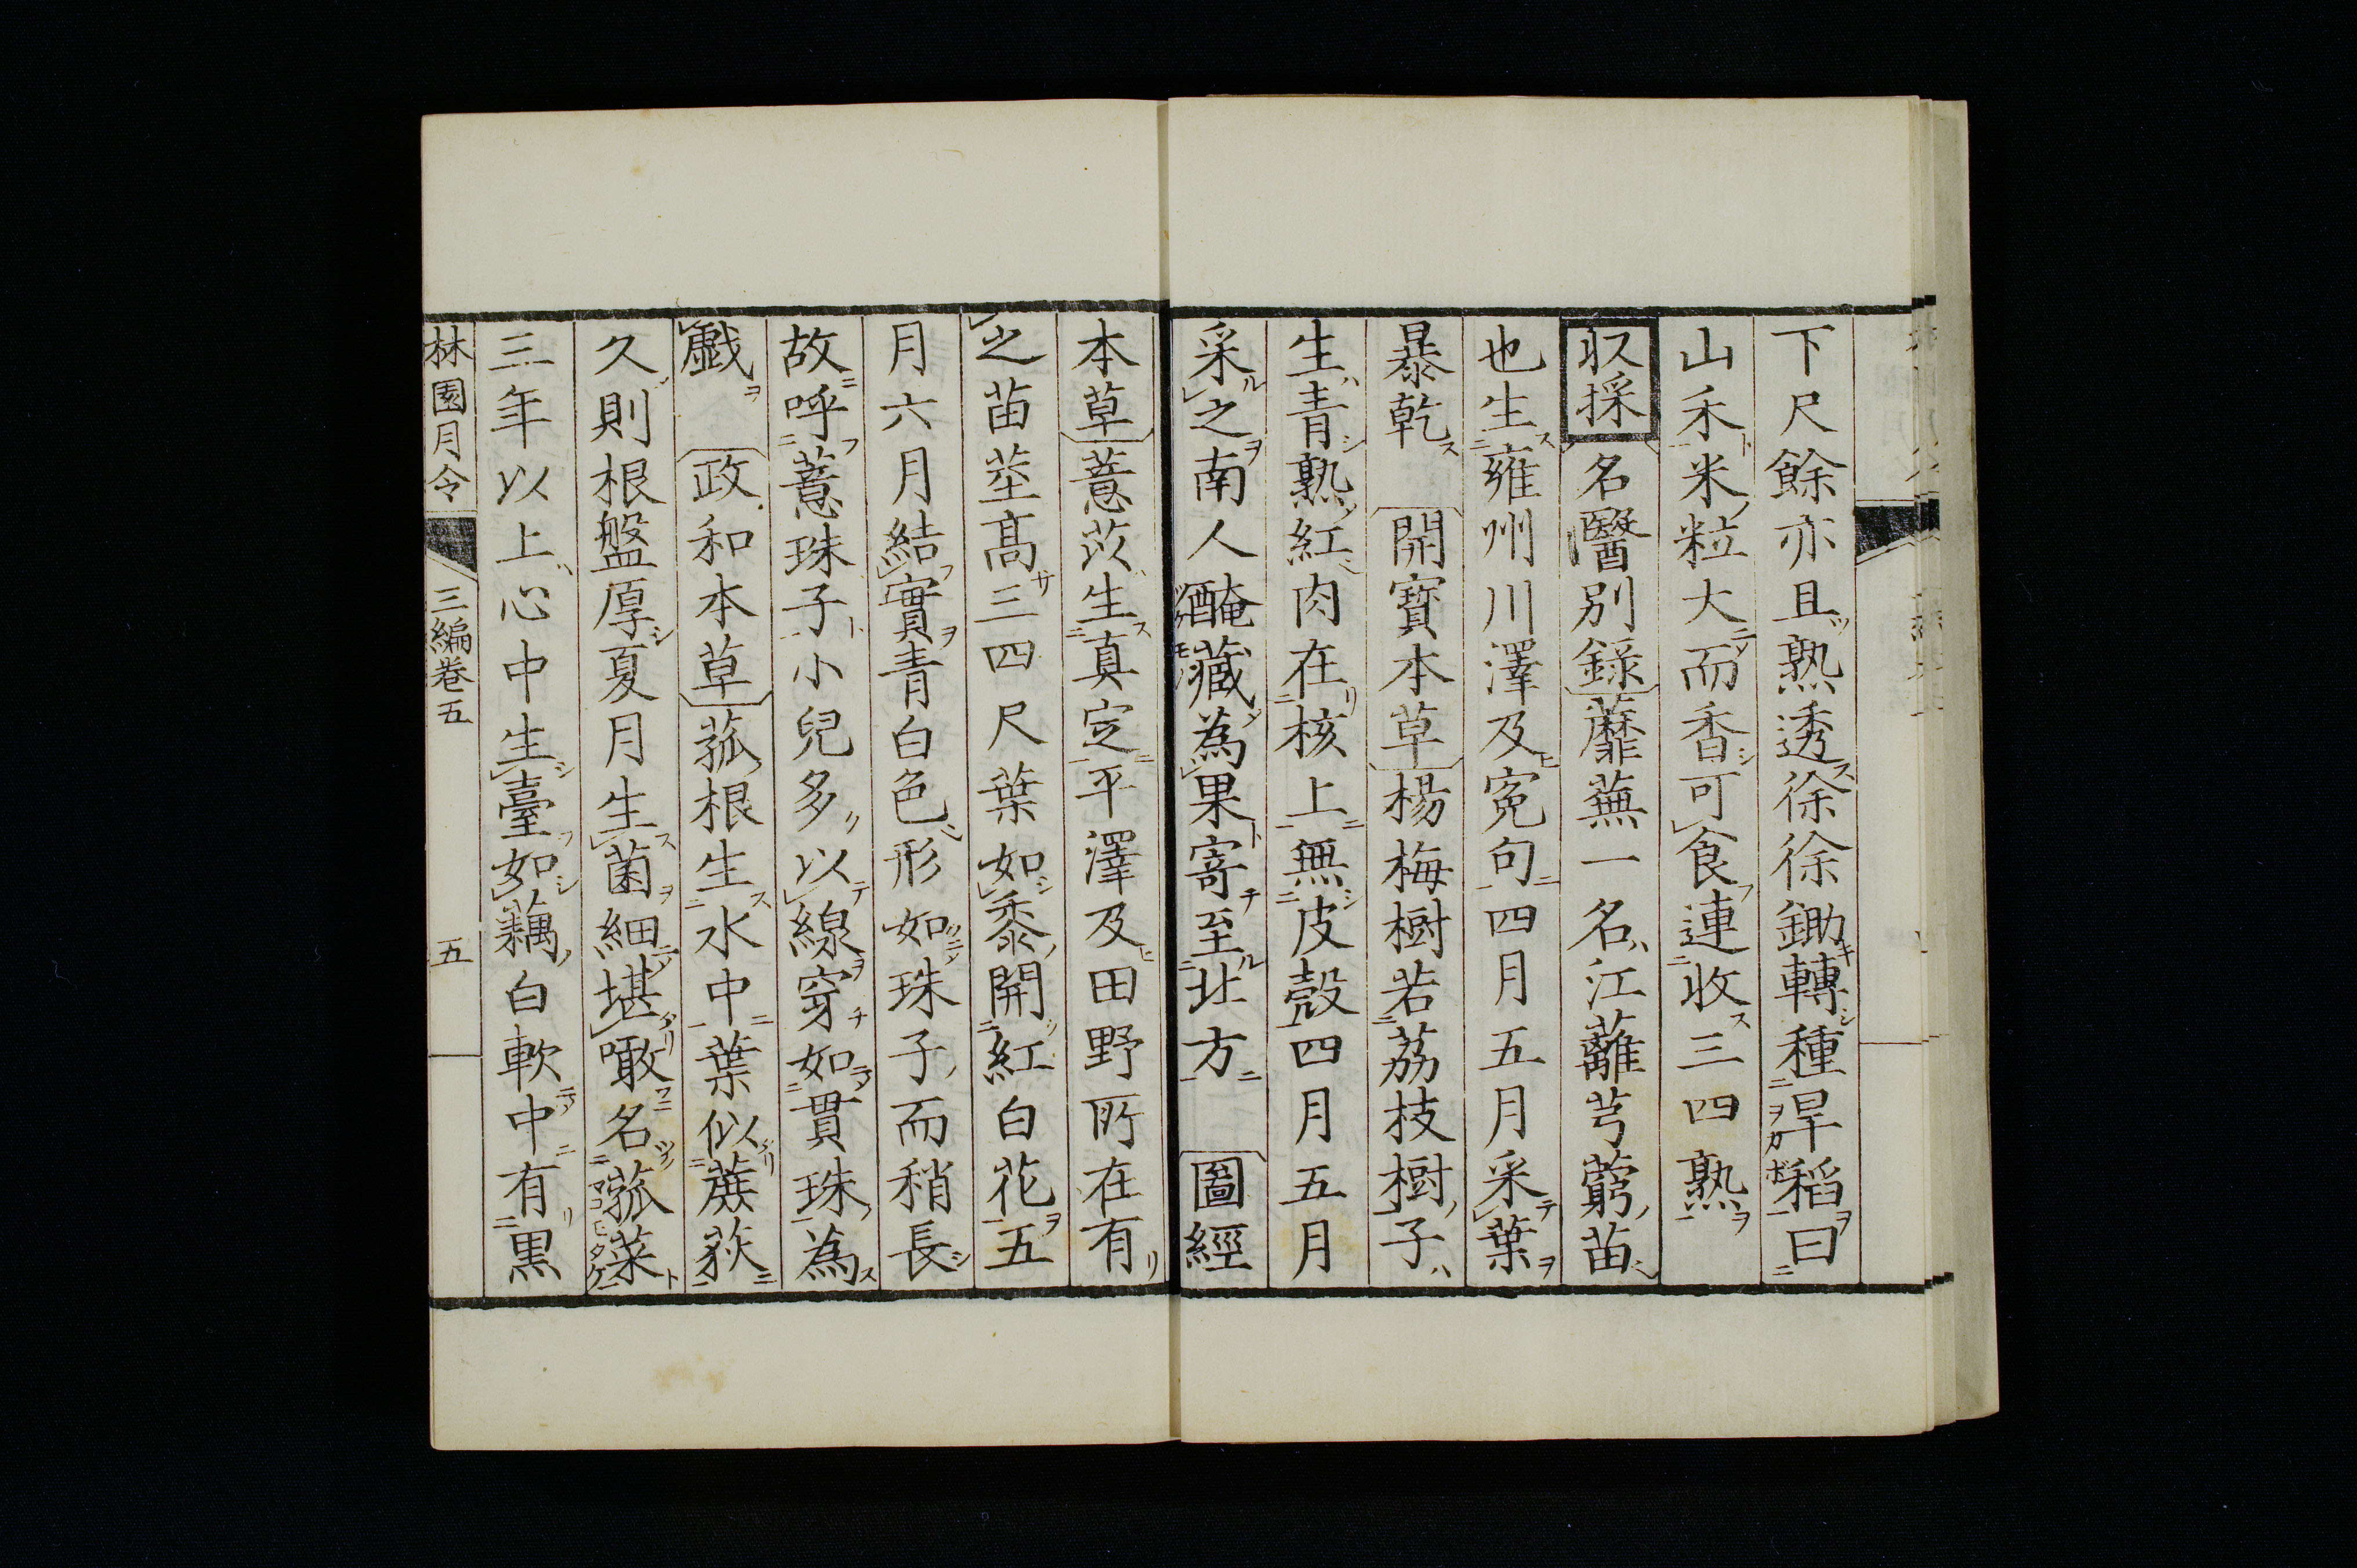 下尺餘亦且熟透徐徐鋤轉種旱稻曰
山禾米粒大而香可食連收三四熟
収採 名醫別錄 蘼蕪一名江蘺芎藭苗
也生雍州川澤及寃句四月五月采葉
暴乾 開寶本草 楊梅樹若荔枝樹子
生青熟紅肉在核上無皮殼四月五月
采之南人醃藏為果寄至北方 圖經
本草 薏苡生真定平澤及田野所在有
之苗莖高三四尺葉如黍開紅白花五
月六月結實青白色形如珠子而稍長
故呼薏珠子小兒多以線穿如貫珠為
戲 政和本草 菰根生水中葉似蔗荻
久則根盤厚夏月生菌細堪噉名菰菜
三年以上心中生臺如藕白軟中有黒
林園月令 三編巻五 五